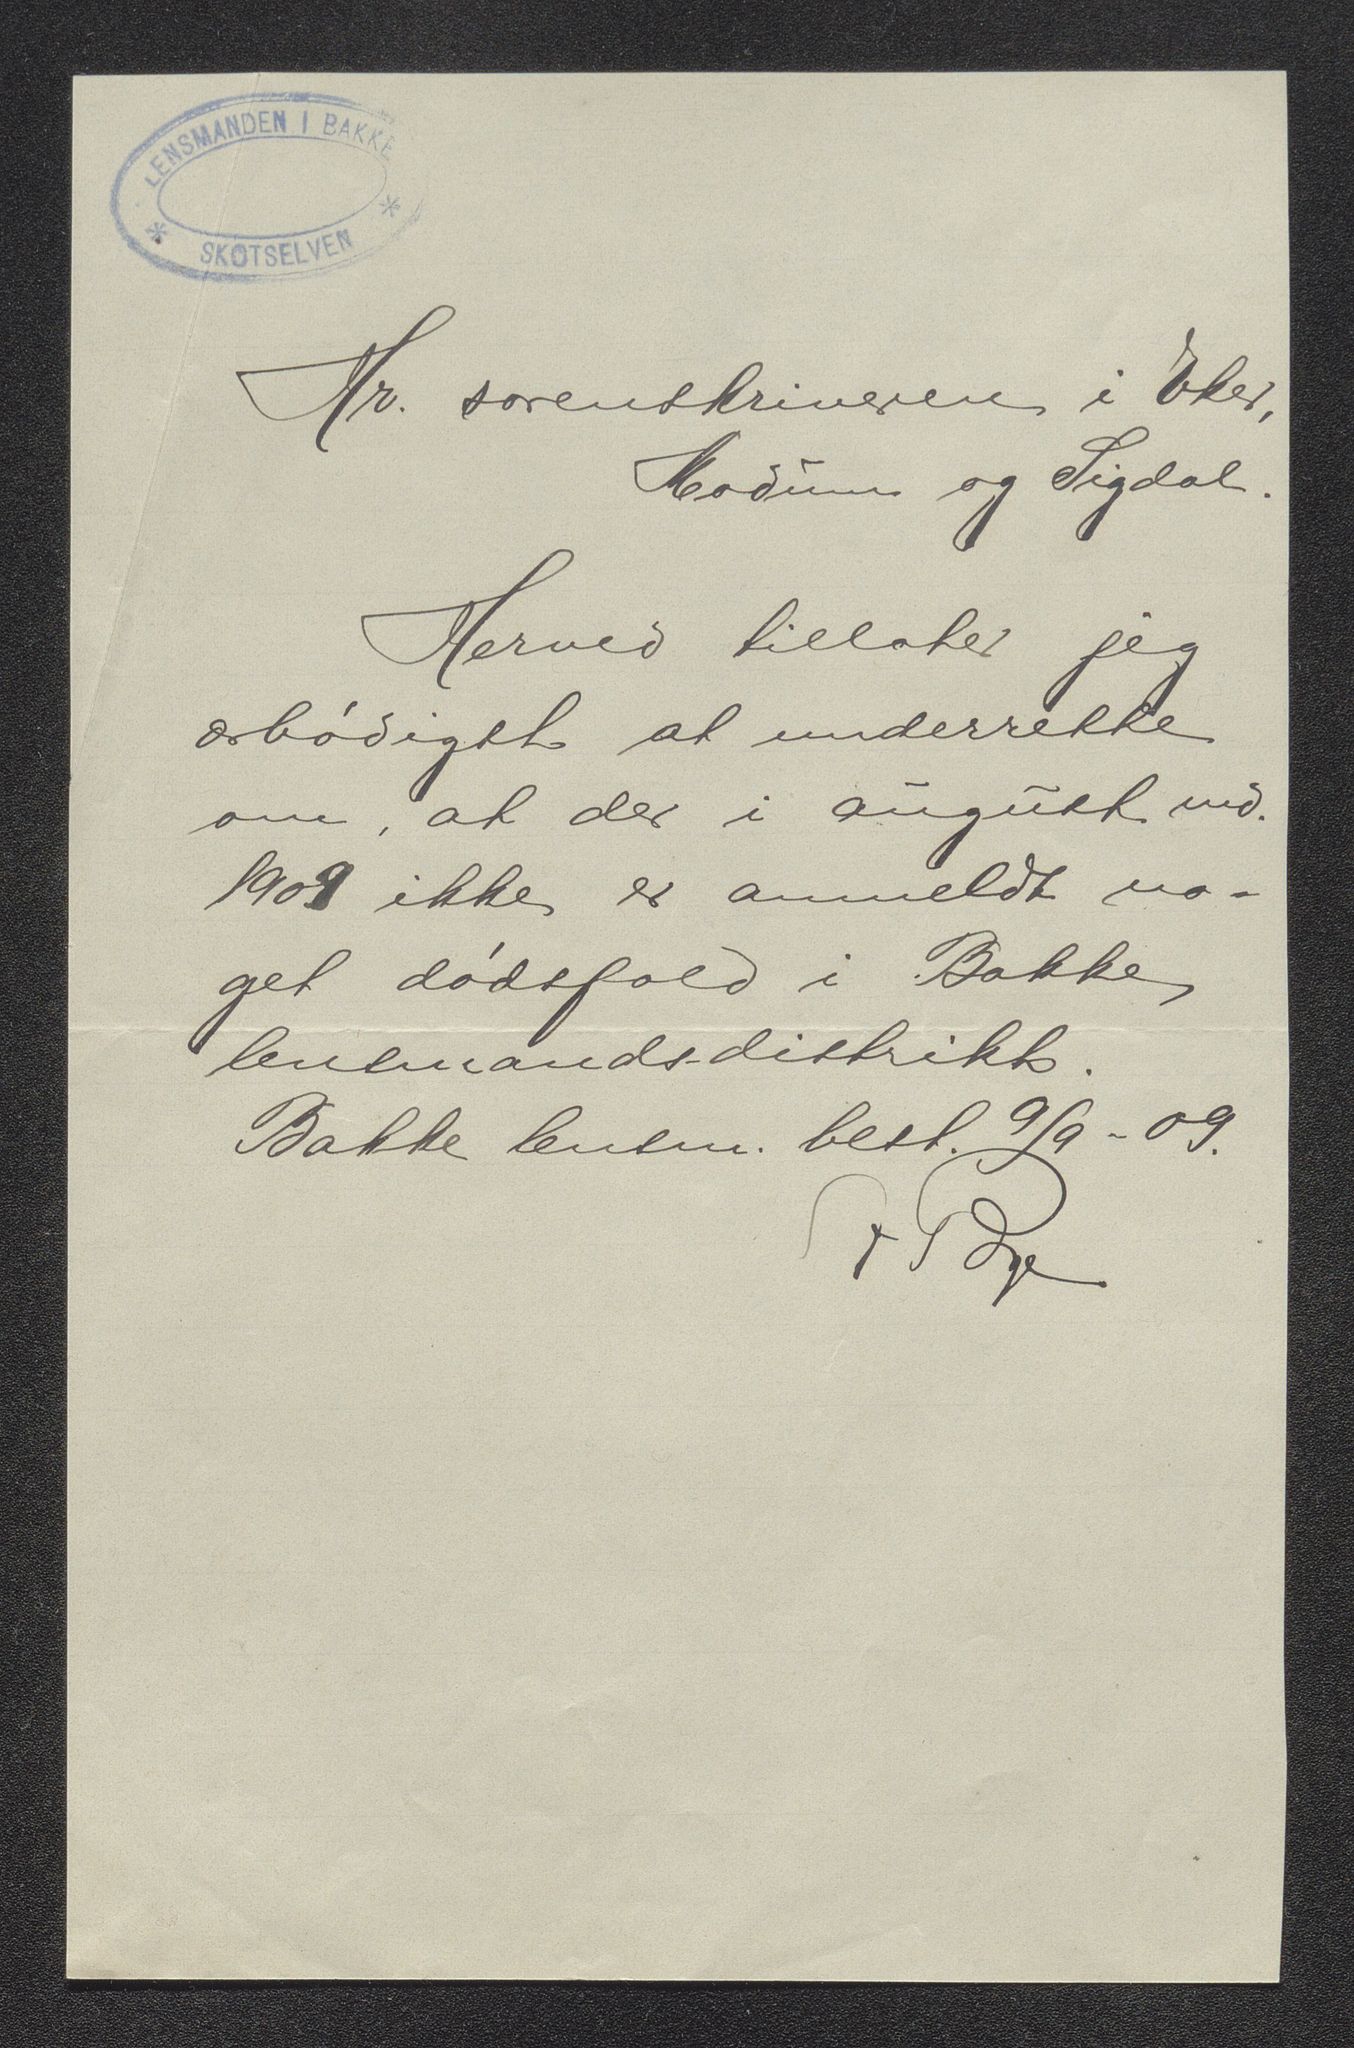 LENSMANDEN I BAKKE
* SKOTSELVEN *
Hr. sorenskriveren i Eker,
Modum og Sigdal.
Herved tillater jeg
ærbødigst at underrette
om, at der i august md.
1909 ikke er anmeldt no-
get dødsfald i Bakke
lensmandsdistrikt.
Bakke lensm. best. 9/9 - 09.
Bye